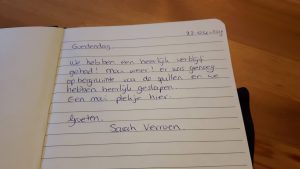 Goedendag,
We hebben een heerlijk verblijf
gehad! Mooi weer! er was genoeg
op de grill en we
hebben heerlijk geslapen.
Een mooi plekje hier.
Groeten,
Sarah Verroen